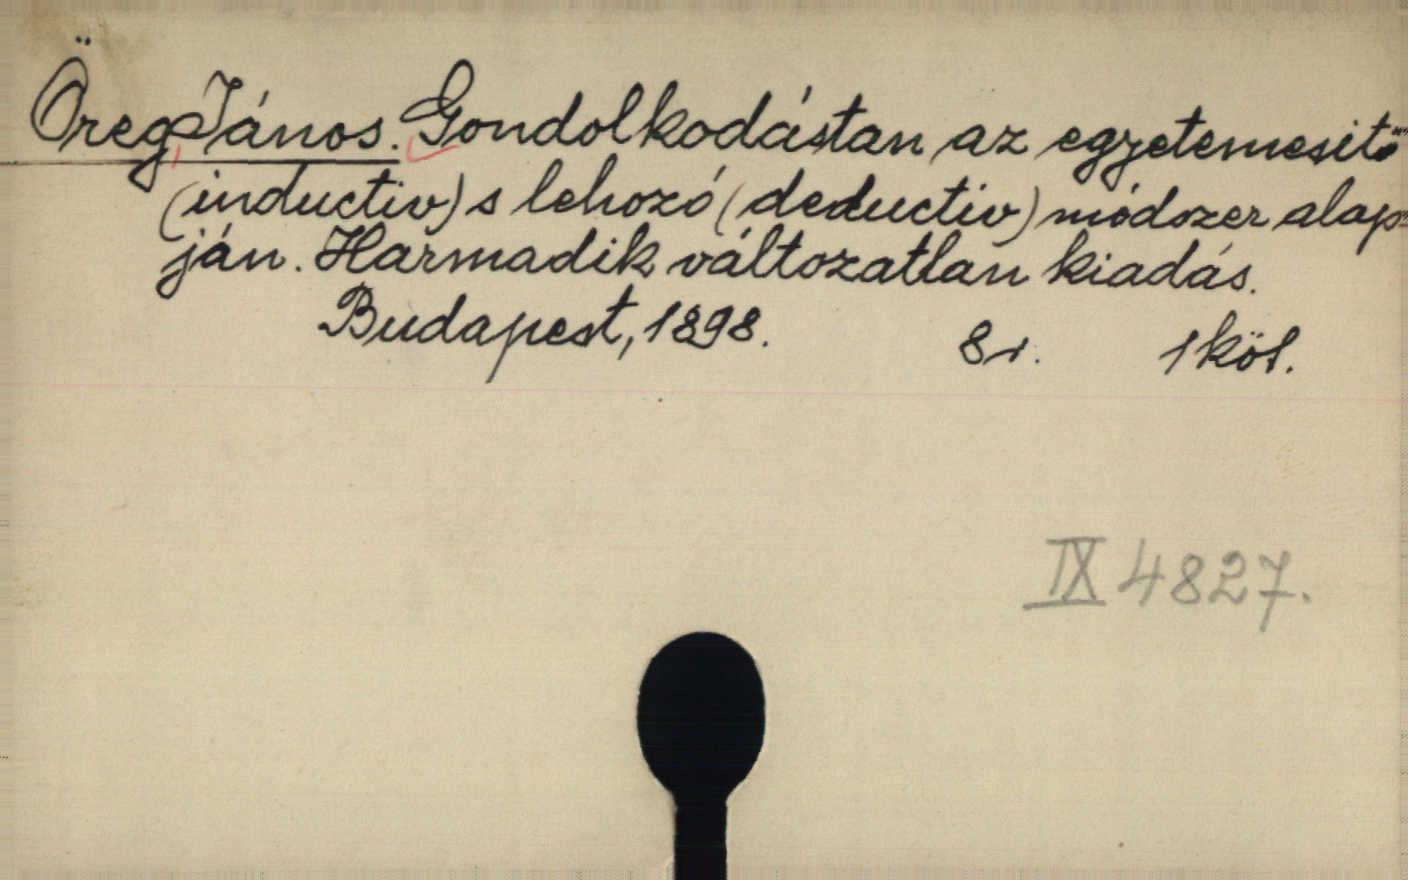 Öreg János. Gondolkodástan az egyetemesitő
(inductiv) s lehozó (deductiv) módszer alap=
ján. Harmadik változatlan kiadás.
Budapest, 1898. 8r. 1 köt.
IX 4827.